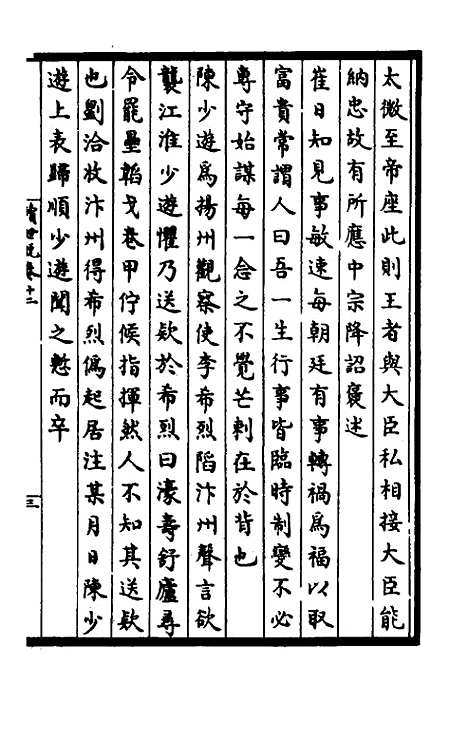 太微至帝座此則王者與大臣私相接大臣能
納忠故有所應中宗降詔襃述
崔日知見事敏速每朝廷有事轉禍爲福以取
富貴常謂人曰吾一生行事皆臨時制變不必
專守始謀每一念之不覺芒刺在於背也
陳少遊爲揚州觀察使李希烈陷汴州聲言欲
襲江淮少遊懼乃送欵於希烈曰濠壽舒廬尋
令罷壘韜戈卷甲佇候指揮然人不知其送欵
也劉洽收汴州得希烈僞起居注某月日陳少
遊上表歸順少遊聞之慙而卒
續世說卷十二
三